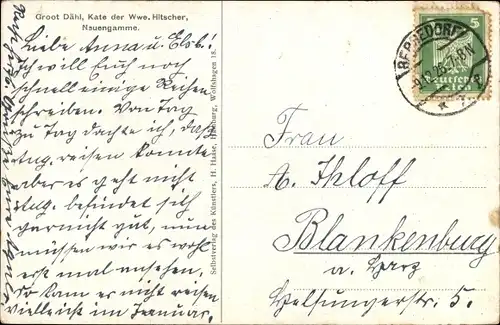 Groot Dähl, Kate der Wwe. Hitscher,
Nauengamme.
Liebe Anna u. Elsb.!
Ich will Euch noch
schnell einige Zeilen
schreiben. Von Tag
zu Tag dachte ich, daß
Aug. reisen konnte
aber es geht nicht
Aug. befindet sich
garnicht gut, nun
müssen wir es wohl
erst mal ansehen.
So kann es nicht reisen
vielleicht im Januar.
Selbstverlag des Künstlers, H. Haase, Hamburg, Wolfshagen 18.
BERGEDORF
5
Deutsches
Reich
Frau
A. Ihloff
Blankenburg
a. Harz
Helsungerstr. 5.